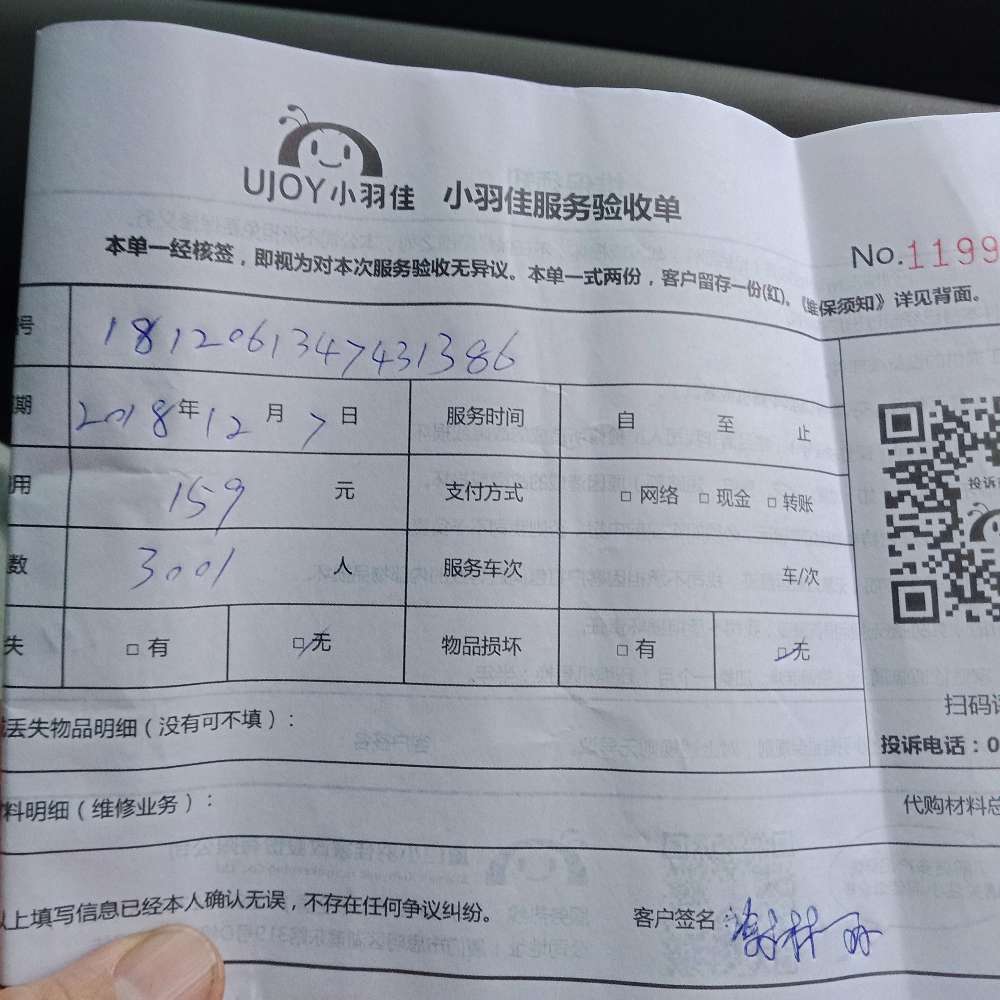 UJOY小羽佳 小羽佳服务验收单
No.1199
本单一经核签，即视为对本次服务验收无异议。本单一式两份，客户留存一份(红)。《维保须知》详见背面。
号 181206134743 1386
期 2018年12月7日 服务时间 自 至 止
用 159 元 支付方式 □网络 □现金 □转账
数 3001 人 服务车次 车/次
失 □有 □无 物品损坏 □有 □无
丢失物品明细（没有可不填）：
扫码
投诉电话：0
料明细（维修业务）：
代购材料总
以上填写信息已经本人确认无误，不存在任何争议纠纷。 客户签名：